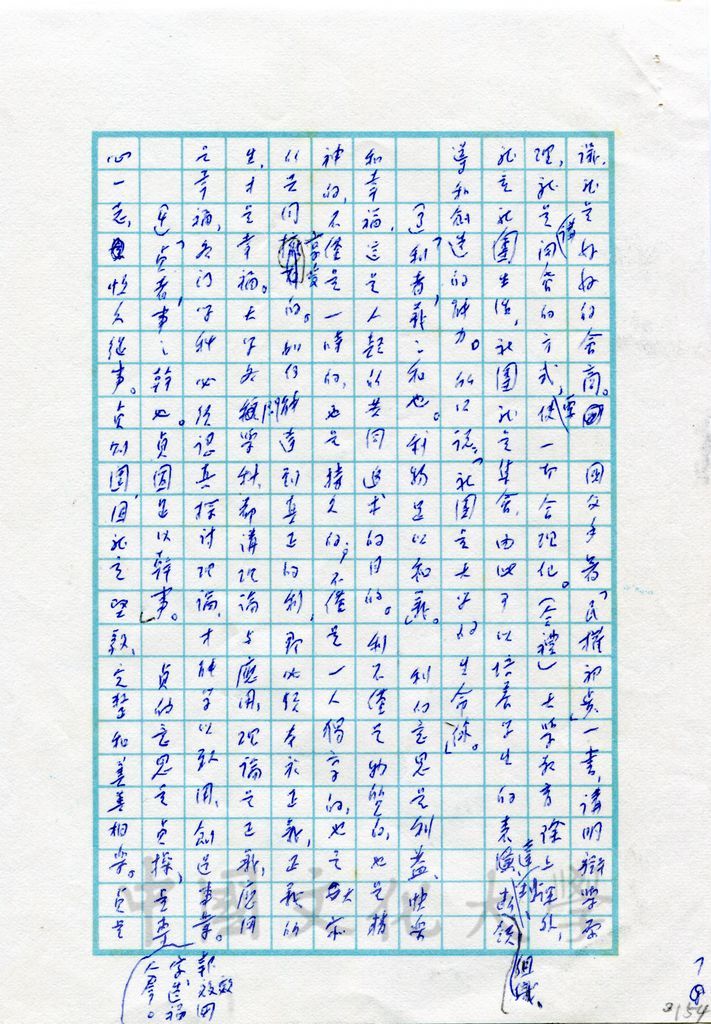 議,就是好好的會商。國父手著「民權初步」一書,講明辦學原
理,就是開會的方式,使一切合理化。(合禮)大學教育除上課外,
就言社團生活,社團就是集會,由此可以培養學生的表達、領
導和創造的能力。所以說:「社團是大學的生命線」。
「利者,義之和也。利物足以和義」。利的意思是利益、快樂
和幸福,這是人類的共同追求的目的。利不僅是物質的,也是精
神的,不僅是一時的,也是持久的;不僅是一人獨享的,也是大家
以共同享受的。如何能達到真正的利,即必須本於正義,正義的
生,才是幸福。大學各種學科,都講理論與應用,理論是正義,應用
是幸福,各門學科必須認真探討理論,才能學以致用,創造事業。
「貞者,事之幹也。貞固足以幹事」。貞的意思是貞操,是專
心一志,恆久從事。貞則固,固就是堅毅、完整和善善相樂。貞是
組織、
報效國
家造福
人群。
3154
中國文化大學